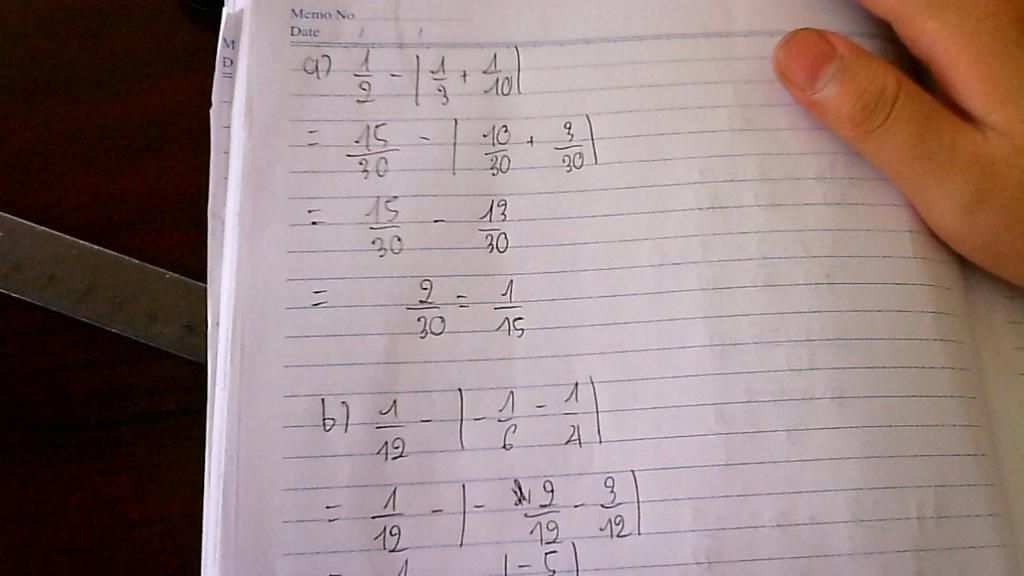 Memo No
Date / /
M
D
a) 1/2 - | 1/3 + 1/10 |
= 15/30 - | 10/30 + 3/30 |
= 15/30 - 13/30
= 2/30 = 1/15
b) 1/12 - | - 1/6 - 1/4 |
= 1/12 - | - 2/12 - 3/12 |
= 1 | - 5 |